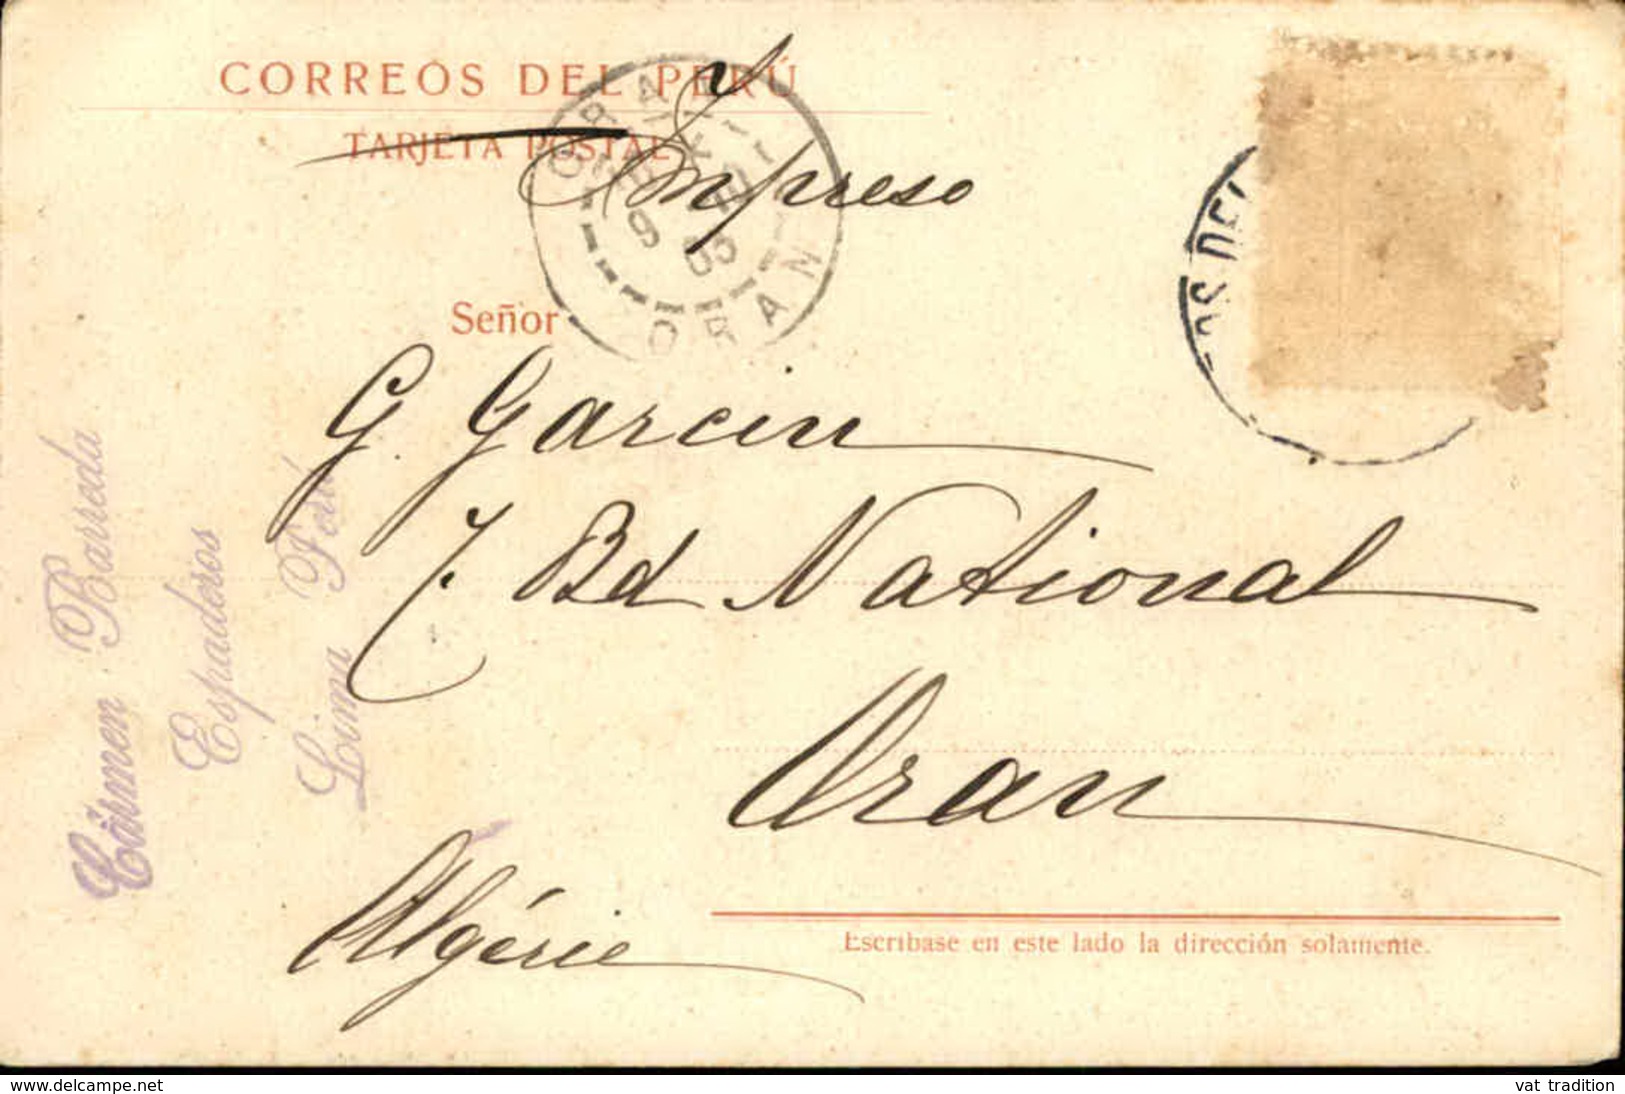 CORREOS DEL PERÚ
TARJETA POSTAL
Impreso
ORAN
ORAN
OS DEL
Señor
G. Garcin
7. Bd National
Oran
Algérie
Escríbase en este lado la dirección solamente.
Cármen Barreda
Espaderos
Lima Perú
www.delcampe.net
vat tradition